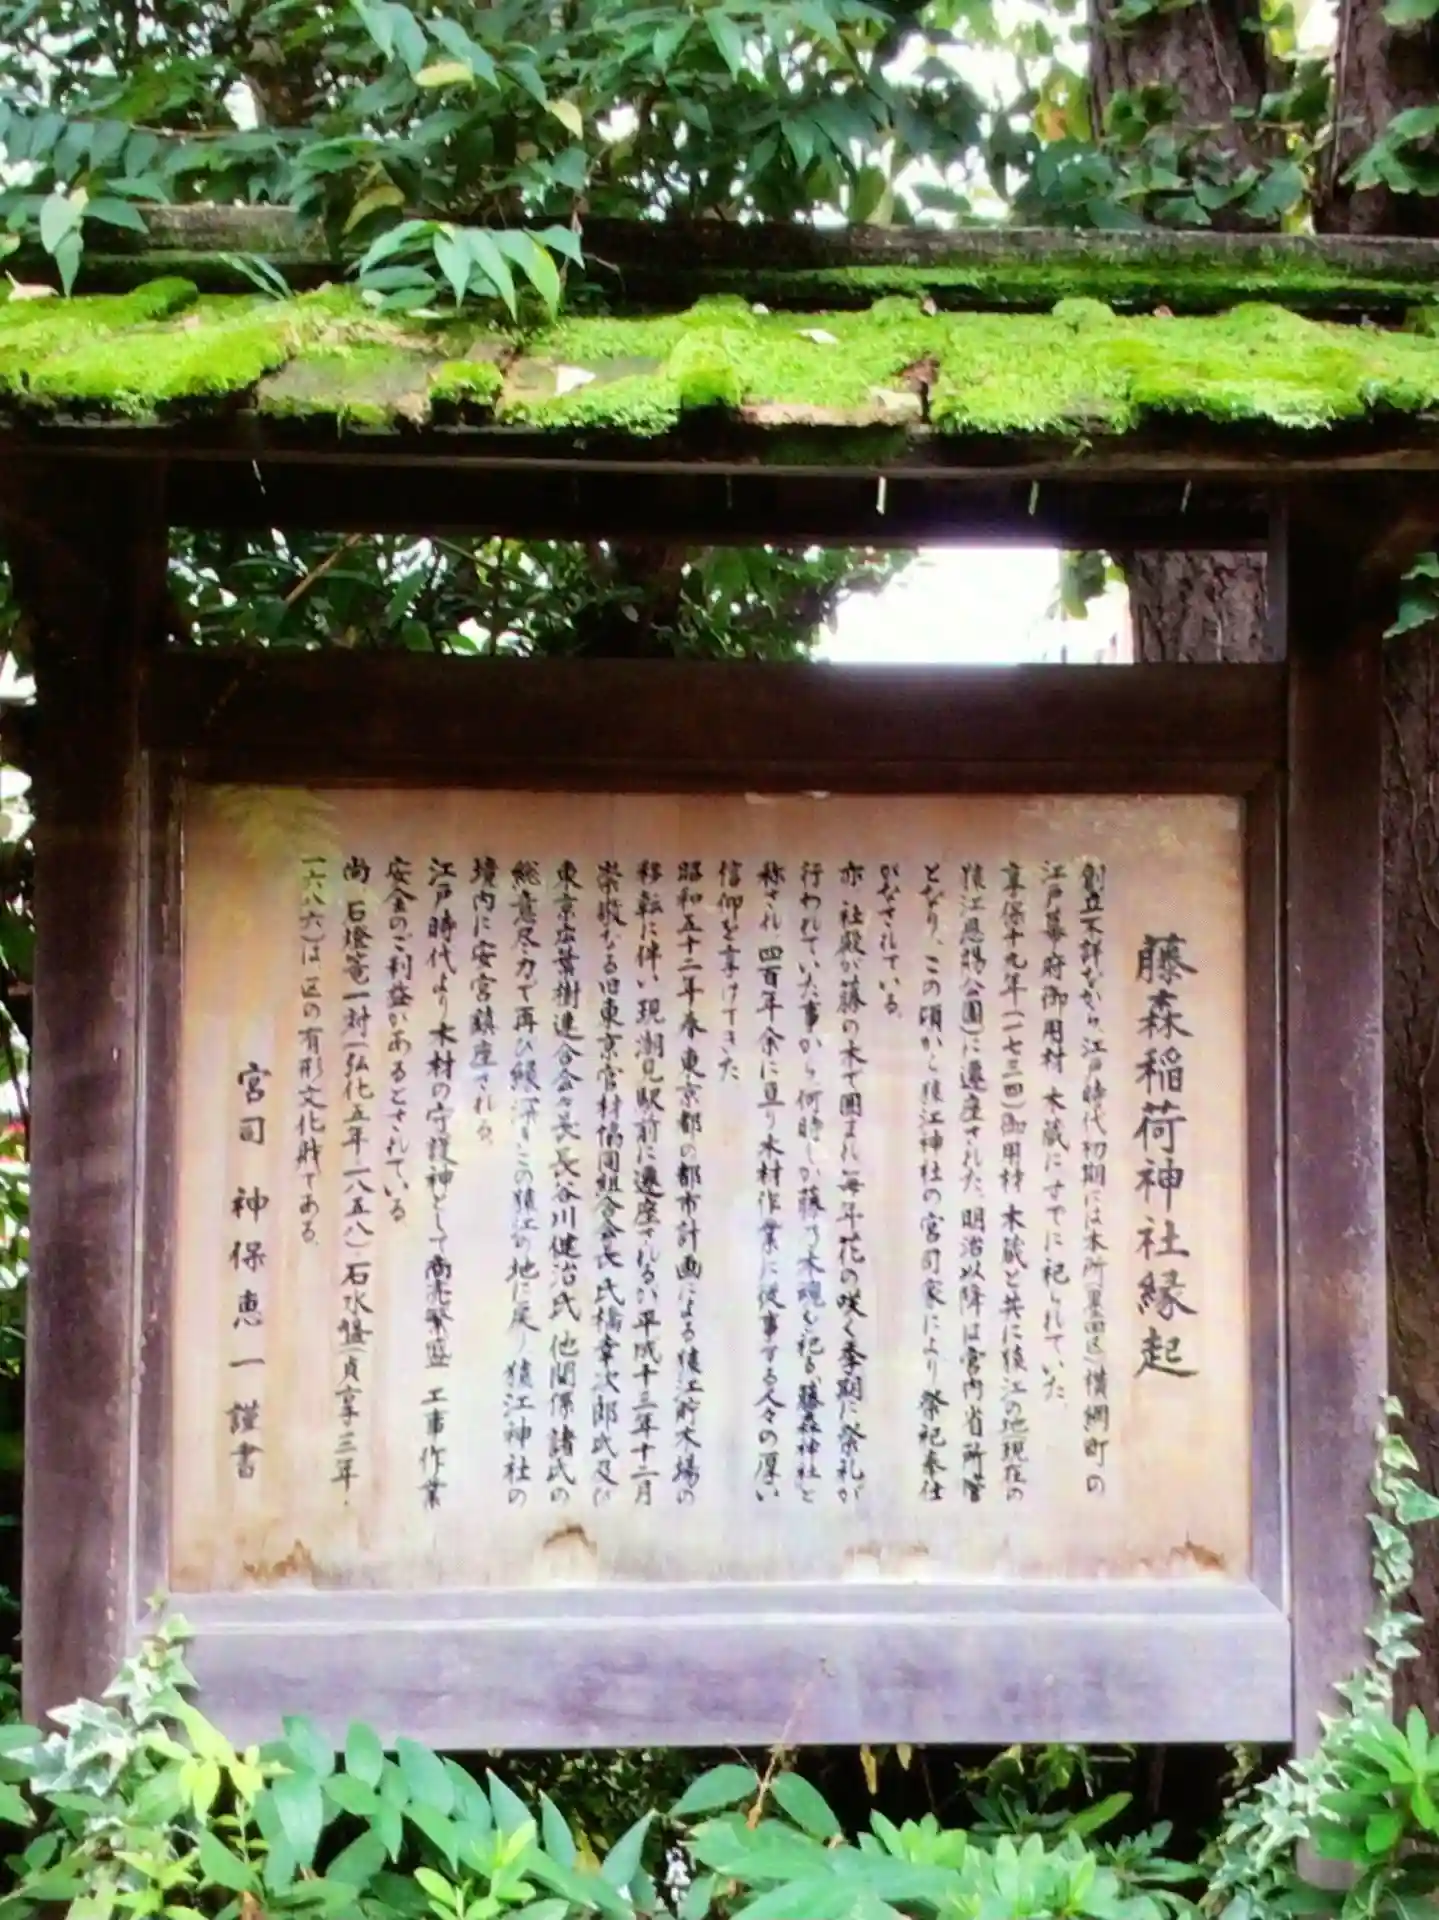 藤森稲荷神社縁起
創立不詳ながら、江戸時代初期には本所(墨田区)横網町の
江戸幕府御用材木蔵にすでに祀られていた
享保十九年(一七三四)御用材木蔵と共に猿江の地現在の
猿江恩賜公園)に遷座された、明治以降は宮内省所管
となり、この頃から猿江神社の宮司家により祭祀奉仕
がなされている。
亦、社殿が藤の木で囲まれ毎年花の咲く季期に祭礼が
行われていた事から何時しか藤乃木魂を祀る、藤森神社と
称され四百年余に亘り木材作業に従事する人々の厚い
信仰を享けてきた
昭和五十二年春東京都の都市計画による猿江貯木場の
移転に伴い現潮見駅前に遷座されるが平成十三年十二月
崇敬なる旧東京官材協同組合会長氏橋幸次郎氏及び
東京広葉樹連合会々長長谷川健治氏他関係諸氏の
総意尽力で再び緑深きこの猿江の地に戻り猿江神社の
境内に安宮鎮座される。
江戸時代より木材の守護神として商売繁盛 工事作業
安全のご利益があるとされている
尚、石燈篭一対(弘化五年一八五八)石水盤(貞享三年・
一六八六)は区の有形文化財である。
宮司 神保恵一謹書